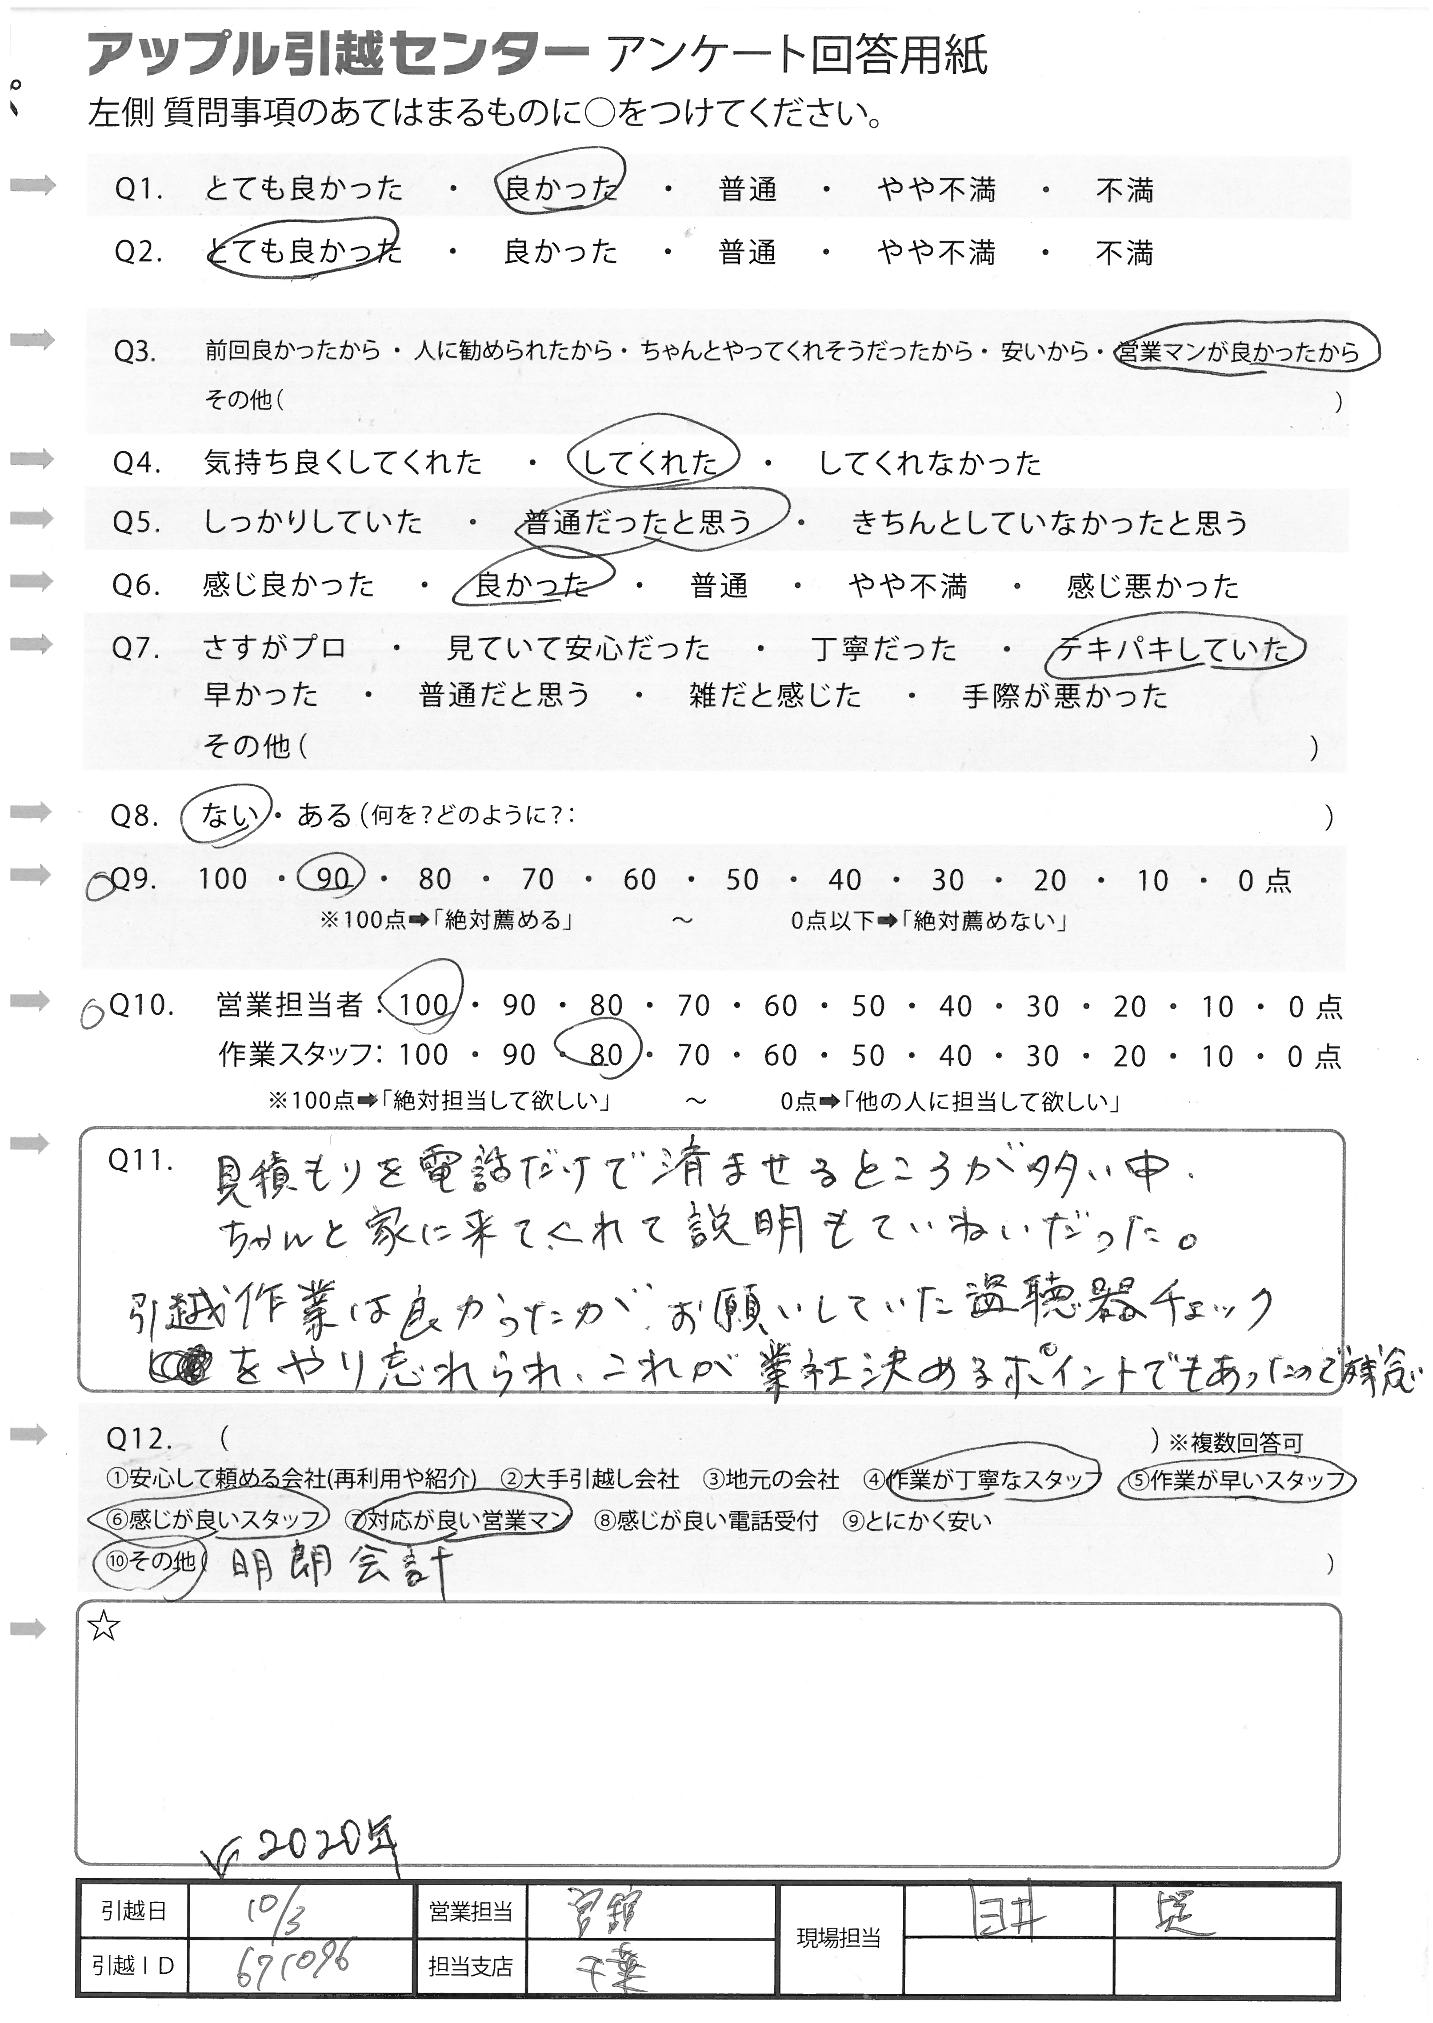 アップル引越センター アンケート回答用紙
左側 質問事項のあてはまるものに○をつけてください。
Q1. とても良かった ・ 良かった ・ 普通 ・ やや不満 ・ 不満
Q2. とても良かった ・ 良かった ・ 普通 ・ やや不満 ・ 不満
Q3. 前回良かったから ・ 人に勧められたから ・ ちゃんとやってくれそうだったから ・ 安いから ・ 営業マンが良かったから
その他( )
Q4. 気持ち良くしてくれた ・ してくれた ・ してくれなかった
Q5. しっかりしていた ・ 普通だったと思う ・ きちんとしていなかったと思う
Q6. 感じ良かった ・ 良かった ・ 普通 ・ やや不満 ・ 感じ悪かった
Q7. さすがプロ ・ 見ていて安心だった ・ 丁寧だった ・ テキパキしていた
早かった ・ 普通だと思う ・ 雑だと感じた ・ 手際が悪かった
その他( )
Q8. ない ・ ある (何を?どのように?: )
Q9. 100 ・ 90 ・ 80 ・ 70 ・ 60 ・ 50 ・ 40 ・ 30 ・ 20 ・ 10 ・ 0 点
※100点➡「絶対薦める」 ～ 0点以下➡「絶対薦めない」
Q10. 営業担当者: 100 ・ 90 ・ 80 ・ 70 ・ 60 ・ 50 ・ 40 ・ 30 ・ 20 ・ 10 ・ 0 点
作業スタッフ: 100 ・ 90 ・ 80 ・ 70 ・ 60 ・ 50 ・ 40 ・ 30 ・ 20 ・ 10 ・ 0 点
※100点➡「絶対担当して欲しい」 ～ 0点➡「他の人に担当して欲しい」
Q11. 見積もりを電話だけで済ませるところが多い中、
ちゃんと家に来てくれて説明もていねいだった。
引越作業は良かったが、お願いしていた盗聴器チェック
をやり忘れられ、これが業社決めるポイントでもあったので残念
Q12. ( ) ※複数回答可
①安心して頼める会社(再利用や紹介) ②大手引越し会社 ③地元の会社 ④作業が丁寧なスタッフ ⑤作業が早いスタッフ
⑥感じが良いスタッフ ⑦対応が良い営業マン ⑧感じが良い電話受付 ⑨とにかく安い
⑩その他( 明朗会計 )
☆
2020年
引越日 10/3 営業担当 宮舘 現場担当 臼井
引越ID 671096 担当支店 千葉